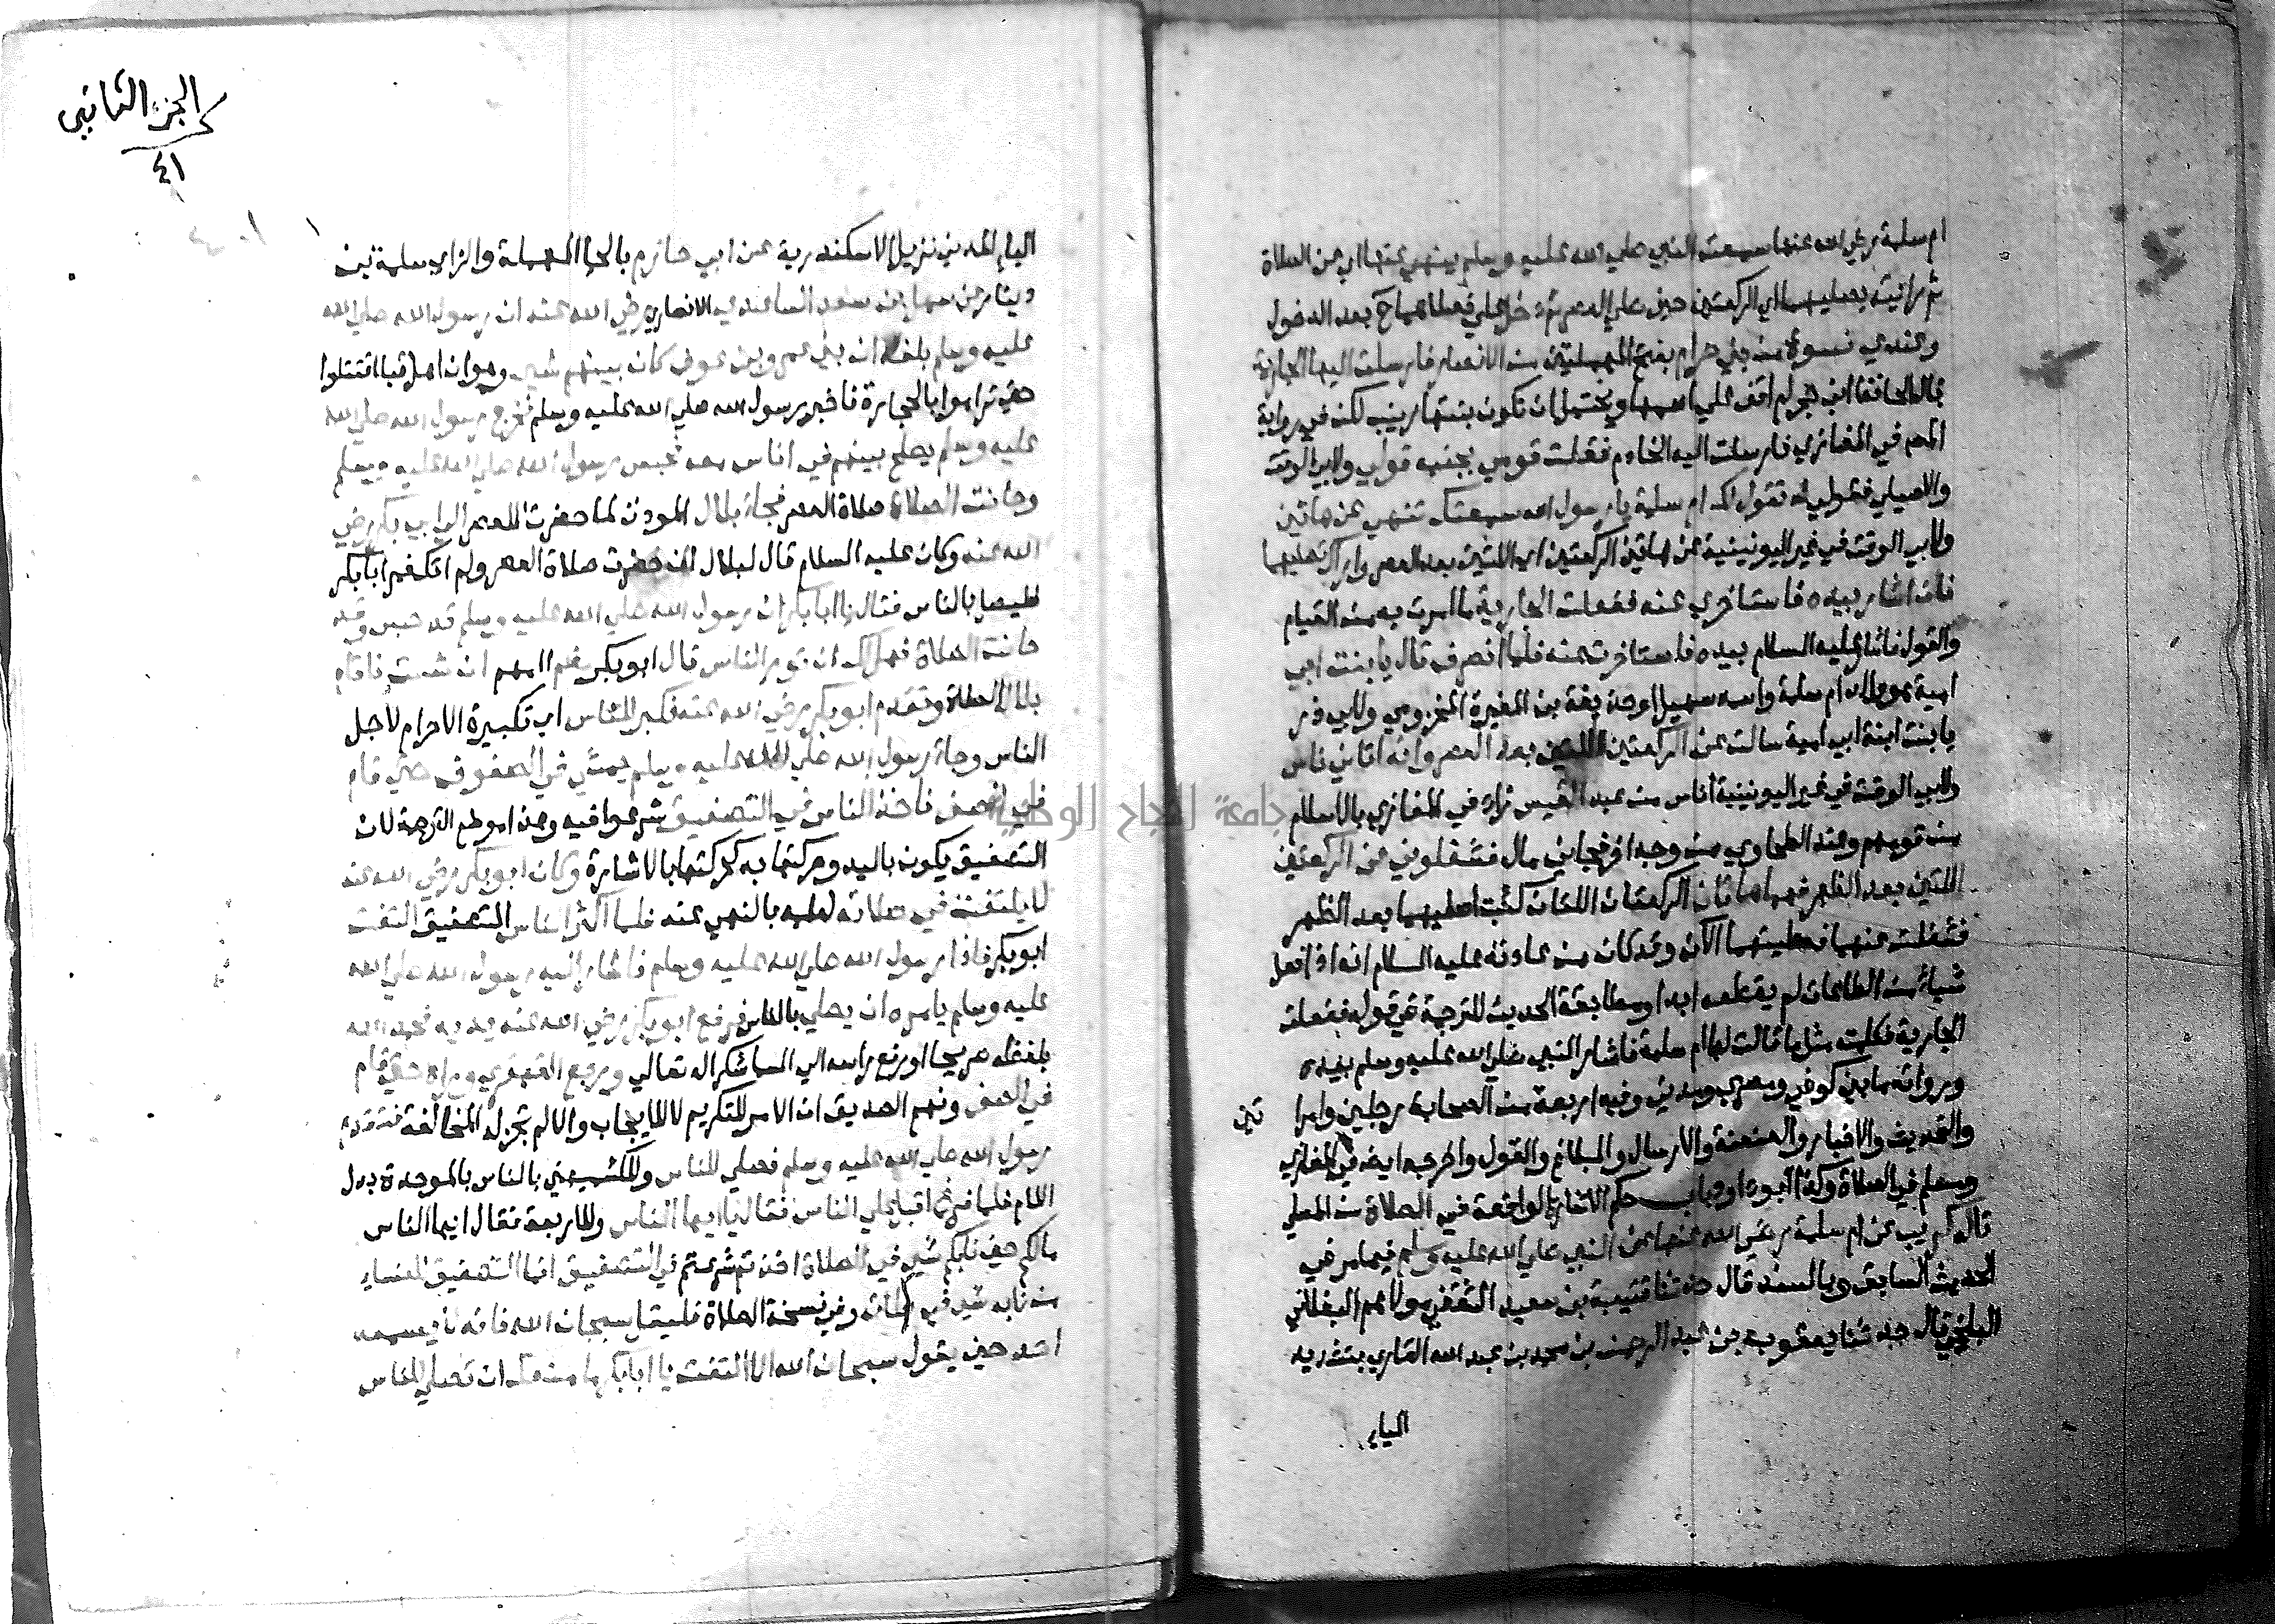 ام سلمة رضي الله عنها سمعت النبي صلي الله عليه وسلم ينهي عنها اي عن الصلاة
ثم رايته يصليهما اي الركعتين حين صلي العصر ثم دخل علي فصلاهما ح بعد الدخول
وعندي نسوة من بني حرام بفتح المهملتين من الانصار فارسلت اليه الجارية
قال الحافظ ابن حجر لم اقف علي اسمها ويحتمل ان تكون بنتها زينب لكن في رواية
المص في المغازي فارسلت اليه الخادم فقلت قومي بجنبه قولي ولابي الوقت
والاصيلي فقولي له تقول لك ام سلمة يا رسول الله سمعتك تنهي عن هاتين
ولابي الوقت في غير اليونينية عن هاتين الركعتين اي اللتين بعد العصر واراك تصليهما
فان اشار بيده فاستاخري عنه ففعلت الجارية ما امرت به من القيام
والقول فاشار عليه السلام بيده فاستاخرت عنه فلما انصرف قال يا بنت ابي
امية هو والد ام سلمة واسمه سهيل او حذيفة بن المغيرة المخزومي ولابي ذر
يا بنت ابنة ابي امية سالت عن الركعتين اللتين بعد العصر وانه اتاني ناس
ولابي الوقت في غير اليونينية اناس من عبد القيس زاد في المغازي بالاسلام
من قومهم وعند الطحاوي من وجه اخر فجاني مال فشغلوني عن الركعتين
اللتين بعد الظهر فهما هاتان الركعتان اللتان كنت اصليهما بعد الظهر
فشغلت عنهما فصليتهما الآن وقد كان من عادته عليه السلام انه اذا فعل
شياء من الطاعات لم يقطعه ابدا ومطابقة الحديث للترجمة في قوله ففعلت
الجارية فكلمت مثل ما قالت لها ام سلمة فاشار النبي صلي الله عليه وسلم بيده
ورواته ما بين كوفي ومصري ومدني وفيه اربعة من الصحابة رجلين وامرا تين
والتحديث والاخبار والعنعنة والارسال والبلاغ والقول واخرجه ايضا في المغازي
ومسلم في الصلاة وكذا ابو داود باب حكم الاشارة الواقعة في الصلاة من المصلي
قاله كريب عن ام سلمة رضي الله عنها عن النبي صلي الله عليه وسلم فيما مر في
الحديث السابق وبالسند قال حدثنا قتيبة بن سعيد الثقفي مولاهم البغلاني
البلخي قال حدثنا يعقوب بن عبد الرحمن بن محمد بن عبد الله القاري بتشديد
الياء
الجزء الثاني
٤١
الياء المدني نزيل الاسكندرية عن ابي حازم بالحاء المهملة والزاي سلمة بن
دينار عن سهل بن سعد الساعدي الانصاري رضي الله عنه ان رسول الله صلي الله
عليه وسلم بلغه ان بني عمرو بن عوف كان بينهم شيء وهو ان اهل قبا اقتتلوا
حتي تراموا بالحجارة فاخبر رسول الله صلي الله عليه وسلم فخرج رسول الله صلي الله
عليه وسلم يصلح بينهم في اناس معه فحبس رسول الله صلي الله عليه وسلم
وحانت الصلاة صلاة العصر فجاء بلال الموذن لما حضرت العصر الي ابي بكر رضي
الله عنه وكان عليه السلام قال لبلال ان حضرت صلاة العصر ولم اتك فمر ابا بكر
فليصل بالناس فقال يا ابا بكر ان رسول الله صلي الله عليه وسلم قد حبس وقد
حانت الصلاة فهل لك ان توم الناس قال ابو بكر نعم اومهم ان شئت فاقام
بلال الصلاة وتقدم ابو بكر رضي الله عنه فكبر للناس اي تكبيرة الاحرام لاجل
الناس وجاء رسول الله صلي الله عليه وسلم يمشي في الصفوف حتي قام
في الصف فاخذ الناس في التصفيق شرعوا فيه وهذا موضع الترجمة لان
التصفيق يكون باليد وحركتها به كحركتها بالاشارة وكان ابو بكر رضي الله عنه
لا يلتفت في صلاته لعلمه بالنهي عنه فلما اكثر الناس التصفيق التفت
ابو بكر فاذا رسول الله صلي الله عليه وسلم فاشار اليه رسول الله صلي الله
عليه وسلم يامره ان يصلي بالناس فرفع ابو بكر رضي الله عنه يديه فحمد الله
بلفظه صريحا او رفع راسه الي السما شكرا لله تعالي ورجع القهقري وراه حتي قام
في الصف وفهم الصديق ان الامر للتكريم لا للايجاب والا لم تجز له المخالفة فتقدم
رسول الله صلي الله عليه وسلم فصلي للناس وللكشميهني بالناس بالموحدة بدل
اللام فلما فرغ اقبل علي الناس فقال يا ايها الناس وللاربعة فقال ايها الناس
مالكم حين نابكم شيء في الصلاة اخذتم شرعتم في التصفيق انما التصفيق للنساء
من نابه شيء في صلاته وفي نسخة الصلاة فليقل سبحان الله فانه لا يسمعه
احد حين يقول سبحان الله الا التفت يا ابا بكر ما منعك ان تصلي للناس
جامعة النجاح الوطنية